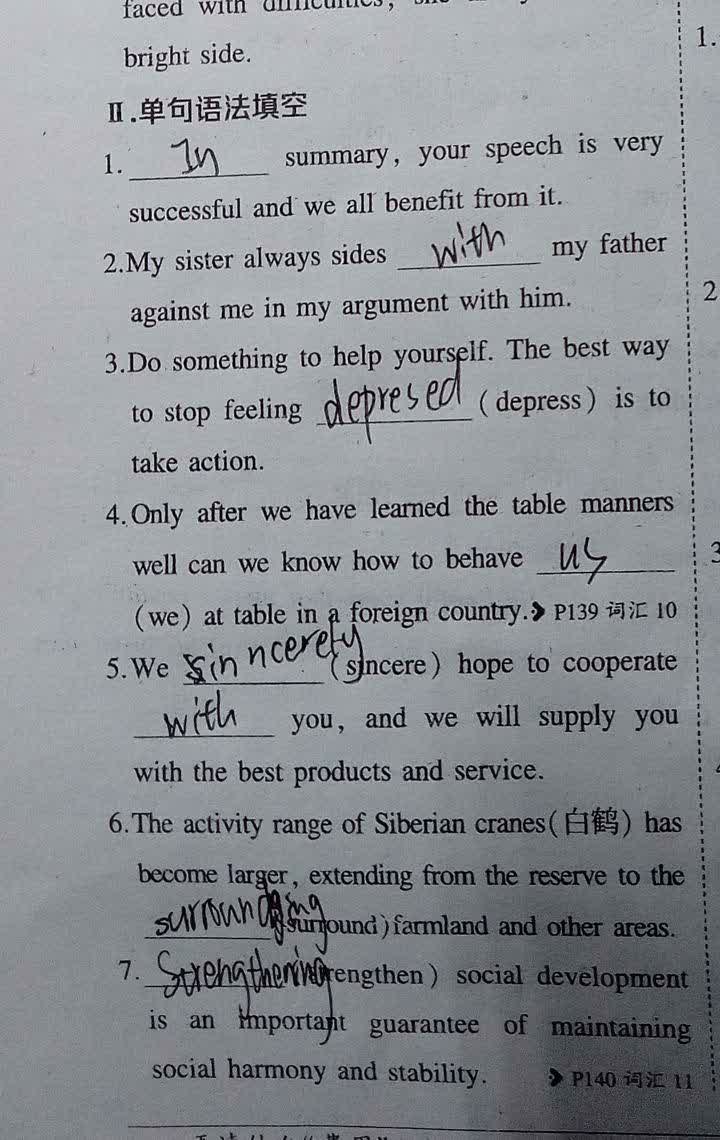 faced with difficulties,
bright side.
1.
Ⅱ.单句语法填空
1. In summary, your speech is very
successful and we all benefit from it.
2.My sister always sides with my father
2
against me in my argument with him.
3.Do something to help yourself. The best way
to stop feeling depresed (depress) is to
take action.
4.Only after we have learned the table manners
well can we know how to behave us
3
(we) at table in a foreign country. P139 词汇 10
5.We sinncerely (sincere) hope to cooperate
with you, and we will supply you
with the best products and service.
6.The activity range of Siberian cranes(白鹤) has
become larger, extending from the reserve to the
surrounding (surround) farmland and other areas.
7. Strengthening (strengthen) social development
is an important guarantee of maintaining
social harmony and stability. P140 词汇 11